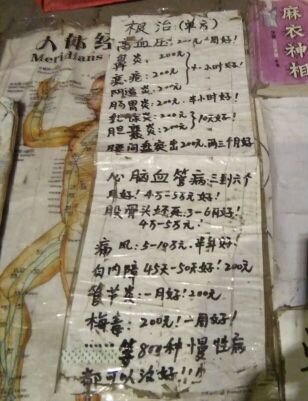 人体经
Meridians
麻衣神相
根治:(单方)
高血压:200元一周好!
鼻炎:200元
痔疮:200元 4-1小时好!
阴道炎:200元
肠胃炎:200元,半小时好!
乳腺炎:200元
胆囊炎:200元 10天好!
腰间盘突出200元,两三个月好!
心脑血管病:三到六个
月好!4万-5万元好!
股骨头坏死:3-6月好!
4万-5万元!
痛风:5-10万元,半年好!
白内障45天-50天好!200元
管节炎:一月好!200元
梅毒:200元!一周好!
等800种慢性病
都可以治好!!!